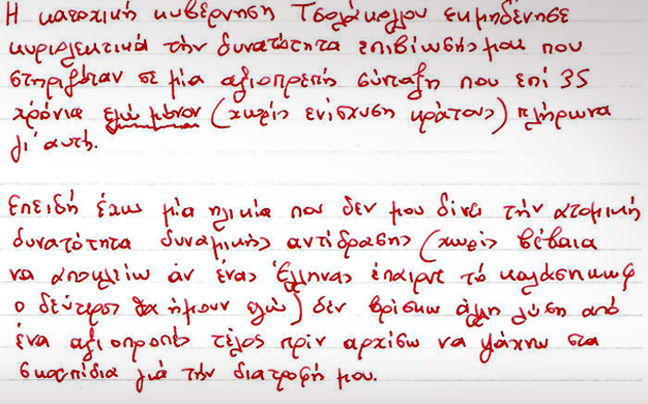 Η κατοχική κυβέρνηση Τσολάκογλου εκμηδένησε
κυριολεκτικά την δυνατότητα επιβίωσής μου που
στηριζόταν σε μία αξιοπρεπή σύνταξη που επί 35
χρόνια εγώ μόνον (χωρίς ενίσχυση κράτους) πλήρωνα
γι' αυτή.
Επειδή έχω μία ηλικία που δεν μου δίνει την ατομική
δυνατότητα δυναμικής αντίδρασης (χωρίς βέβαια
να αποκλείω άν ένας Έλληνας έπαιρνε το καλάσνικωφ
ο δεύτερος θα ήμουν εγώ) δεν βρίσκω άλλη λύση από
ένα αξιοπρεπές τέλος πρίν αρχίσω να ψάχνω στα
σκουπίδια γιά την διατροφή μου.